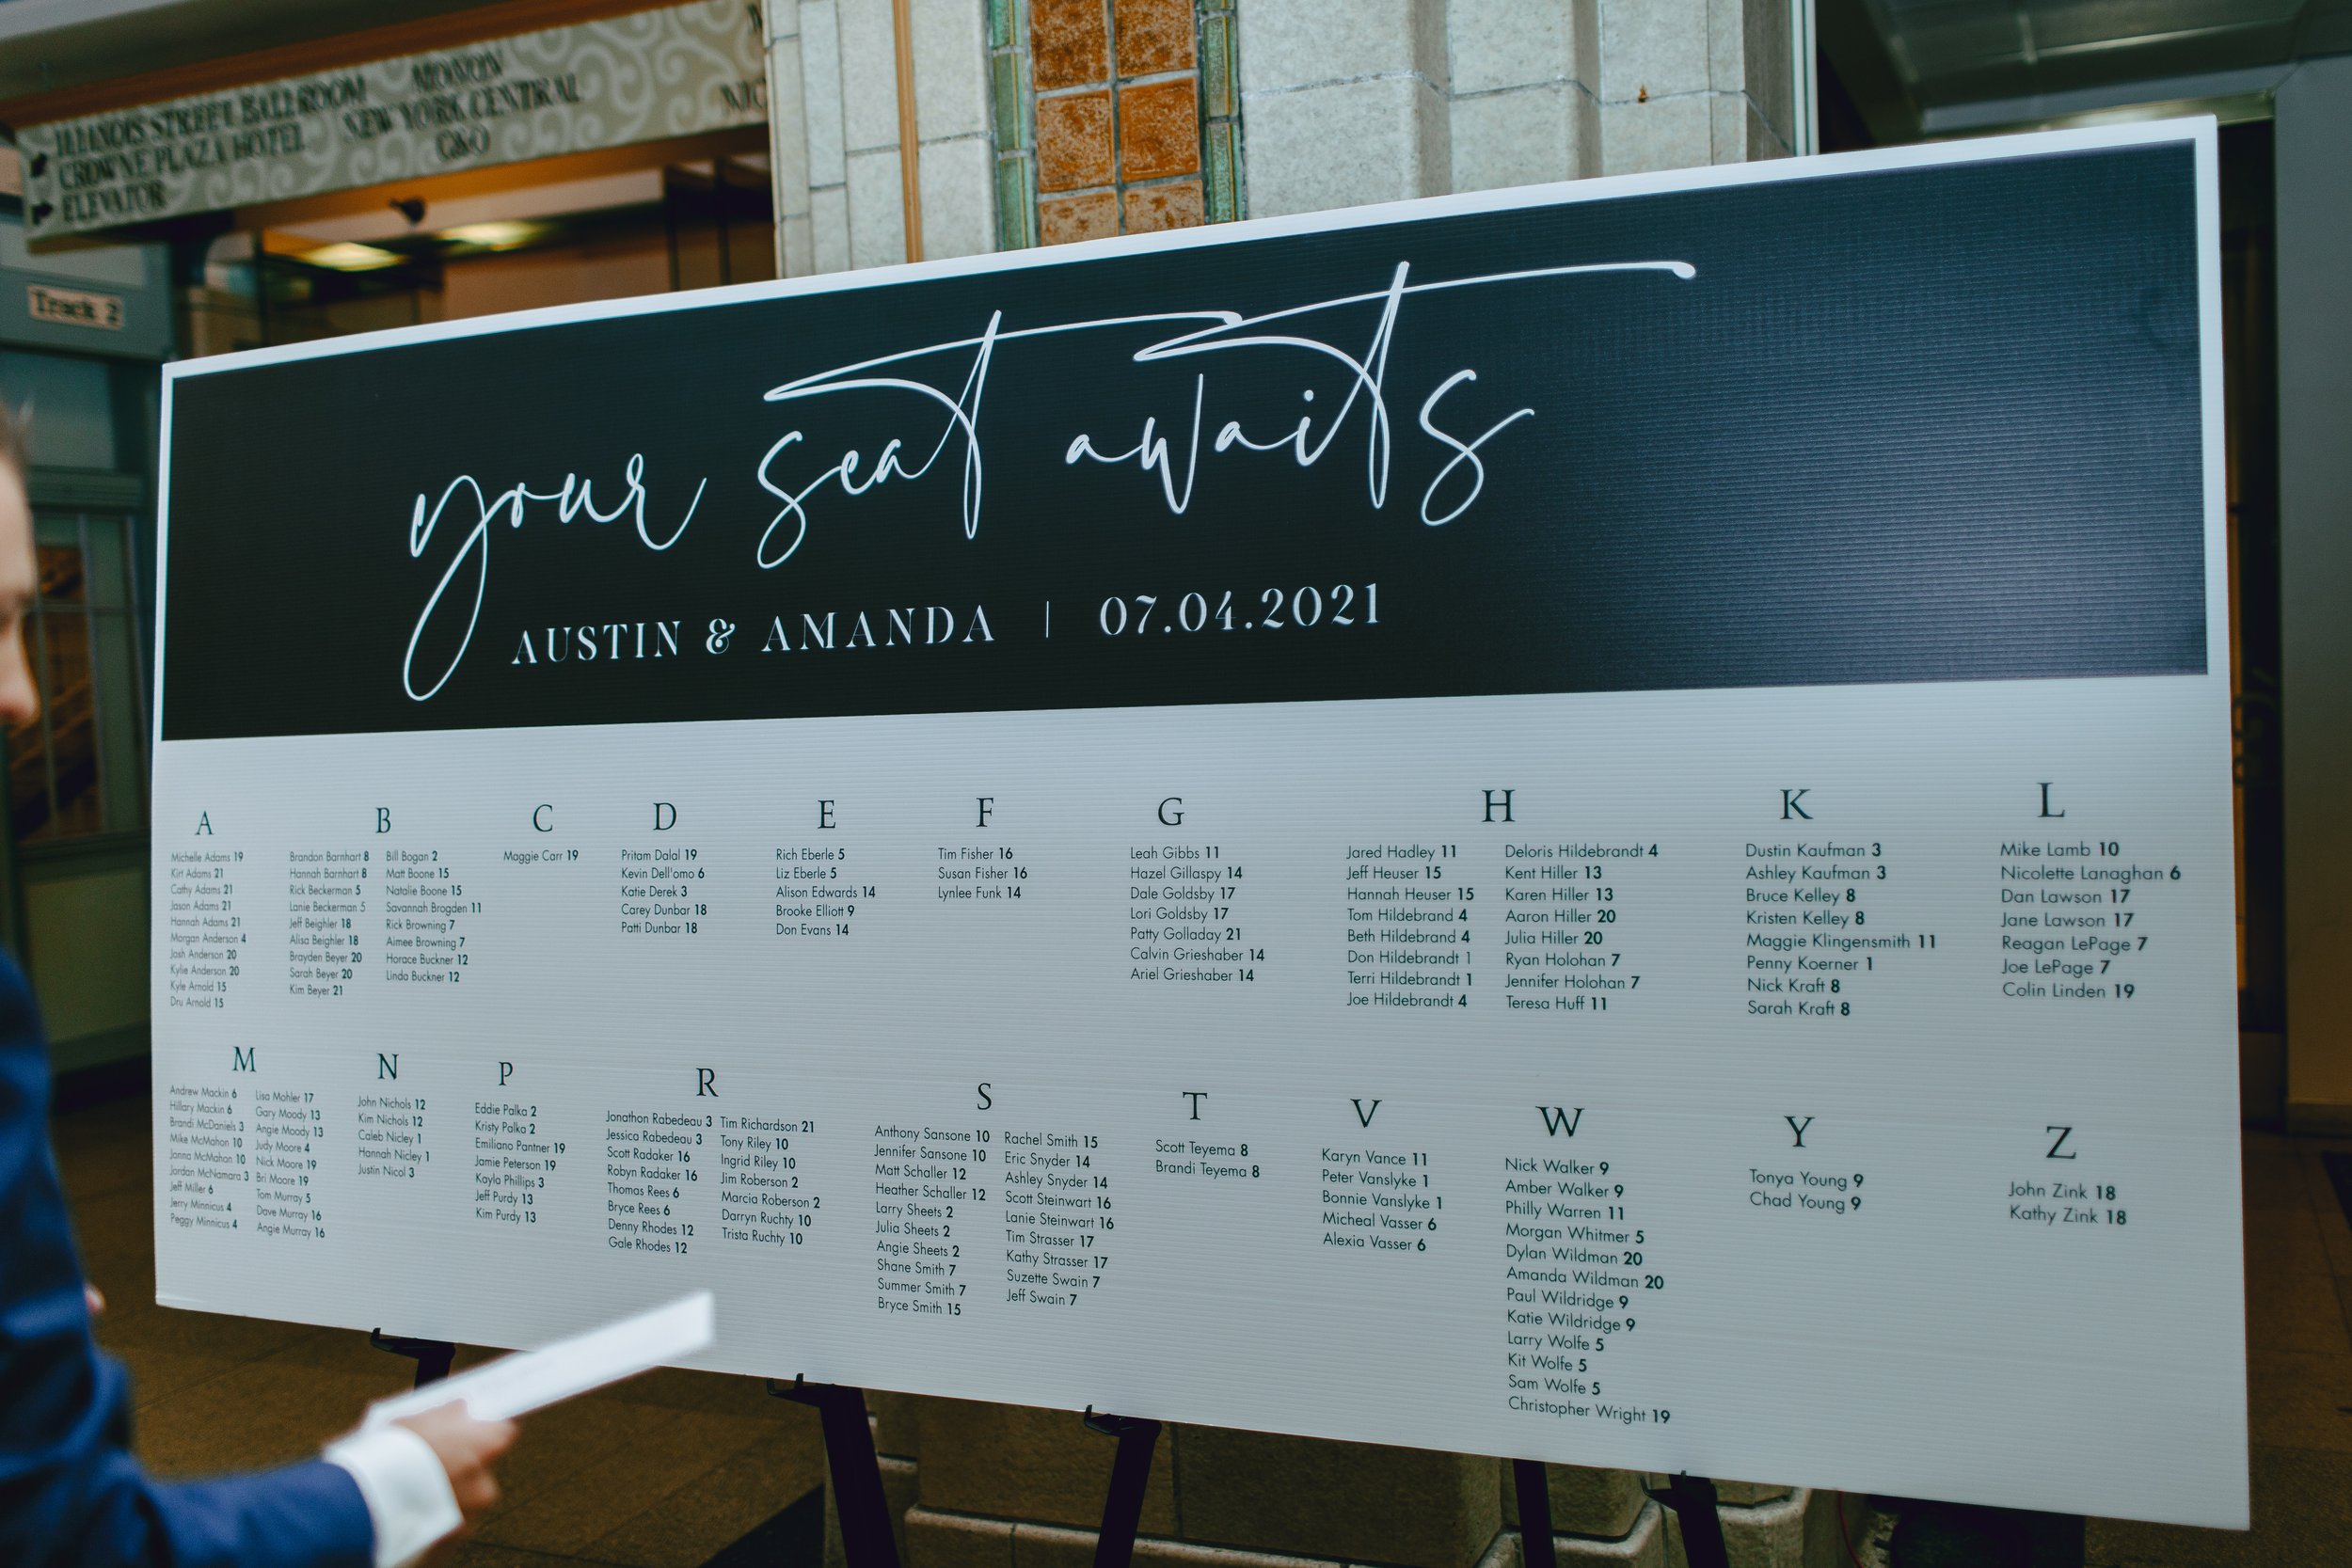 ILLINOIS STREET BALLROOM
CROWNE PLAZA HOTEL
ELEVATOR
MONON
NEW YORK CENTRAL
C&O
Track 2
your seat awaits
AUSTIN & AMANDA | 07.04.2021
A
Michelle Adams 19
Kirt Adams 21
Cathy Adams 21
Jason Adams 21
Hannah Adams 21
Morgan Anderson 4
Josh Anderson 20
Kylie Anderson 20
Kyle Arnold 15
Dru Arnold 15
B
Brandon Barnhart 8
Hannah Barnhart 8
Rick Beckerman 5
Lanie Beckerman 5
Jeff Beighler 18
Alisa Beighler 18
Brayden Beyer 20
Sarah Beyer 20
Kim Beyer 21
Bill Bogan 2
Matt Boone 15
Natalie Boone 15
Savannah Brogden 11
Rick Browning 7
Aimee Browning 7
Horace Buckner 12
Linda Buckner 12
C
Maggie Carr 19
D
Pritam Dalal 19
Kevin Dell'omo 6
Katie Derek 3
Carey Dunbar 18
Patti Dunbar 18
E
Rich Eberle 5
Liz Eberle 5
Alison Edwards 14
Brooke Elliott 9
Don Evans 14
F
Tim Fisher 16
Susan Fisher 16
Lynlee Funk 14
G
Leah Gibbs 11
Hazel Gillaspy 14
Dale Goldsby 17
Lori Goldsby 17
Patty Golladay 21
Calvin Grieshaber 14
Ariel Grieshaber 14
H
Jared Hadley 11
Jeff Heuser 15
Hannah Heuser 15
Tom Hildebrand 4
Beth Hildebrand 4
Don Hildebrandt 1
Terri Hildebrandt 1
Joe Hildebrandt 4
Deloris Hildebrandt 4
Kent Hiller 13
Karen Hiller 13
Aaron Hiller 20
Julia Hiller 20
Ryan Holohan 7
Jennifer Holohan 7
Teresa Huff 11
K
Dustin Kaufman 3
Ashley Kaufman 3
Bruce Kelley 8
Kristen Kelley 8
Maggie Klingensmith 11
Penny Koerner 1
Nick Kraft 8
Sarah Kraft 8
L
Mike Lamb 10
Nicolette Lanaghan 6
Dan Lawson 17
Jane Lawson 17
Reagan LePage 7
Joe LePage 7
Colin Linden 19
M
Andrew Mackin 6
Hillary Mackin 6
Brandi McDaniels 3
Mike McMahon 10
Jonna McMahon 10
Jordan McNamara 3
Jeff Miller 6
Jerry Minnicus 4
Peggy Minnicus 4
Lisa Mohler 17
Gary Moody 13
Angie Moody 13
Judy Moore 4
Nick Moore 19
Bri Moore 19
Tom Murray 5
Dave Murray 16
Angie Murray 16
N
John Nichols 12
Kim Nichols 12
Caleb Nicley 1
Hannah Nicley 1
Justin Nicol 3
P
Eddie Palka 2
Kristy Palka 2
Emiliano Pantner 19
Jamie Peterson 19
Kayla Phillips 3
Jeff Purdy 13
Kim Purdy 13
R
Jonathon Rabedeau 3
Jessica Rabedeau 3
Scott Radaker 16
Robyn Radaker 16
Thomas Rees 6
Bryce Rees 6
Denny Rhodes 12
Gale Rhodes 12
Tim Richardson 21
Tony Riley 10
Ingrid Riley 10
Jim Roberson 2
Marcia Roberson 2
Darryn Ruchty 10
Trista Ruchty 10
S
Anthony Sansone 10
Jennifer Sansone 10
Matt Schaller 12
Heather Schaller 12
Larry Sheets 2
Julia Sheets 2
Angie Sheets 2
Shane Smith 7
Summer Smith 7
Bryce Smith 15
Rachel Smith 15
Eric Snyder 14
Ashley Snyder 14
Scott Steinwart 16
Lanie Steinwart 16
Tim Strasser 17
Kathy Strasser 17
Suzette Swain 7
Jeff Swain 7
T
Scott Teyema 8
Brandi Teyema 8
V
Karyn Vance 11
Peter Vanslyke 1
Bonnie Vanslyke 1
Micheal Vasser 6
Alexia Vasser 6
W
Nick Walker 9
Amber Walker 9
Philly Warren 11
Morgan Whitmer 5
Dylan Wildman 20
Amanda Wildman 20
Paul Wildridge 9
Katie Wildridge 9
Larry Wolfe 5
Kit Wolfe 5
Sam Wolfe 5
Christopher Wright 19
Y
Tonya Young 9
Chad Young 9
Z
John Zink 18
Kathy Zink 18